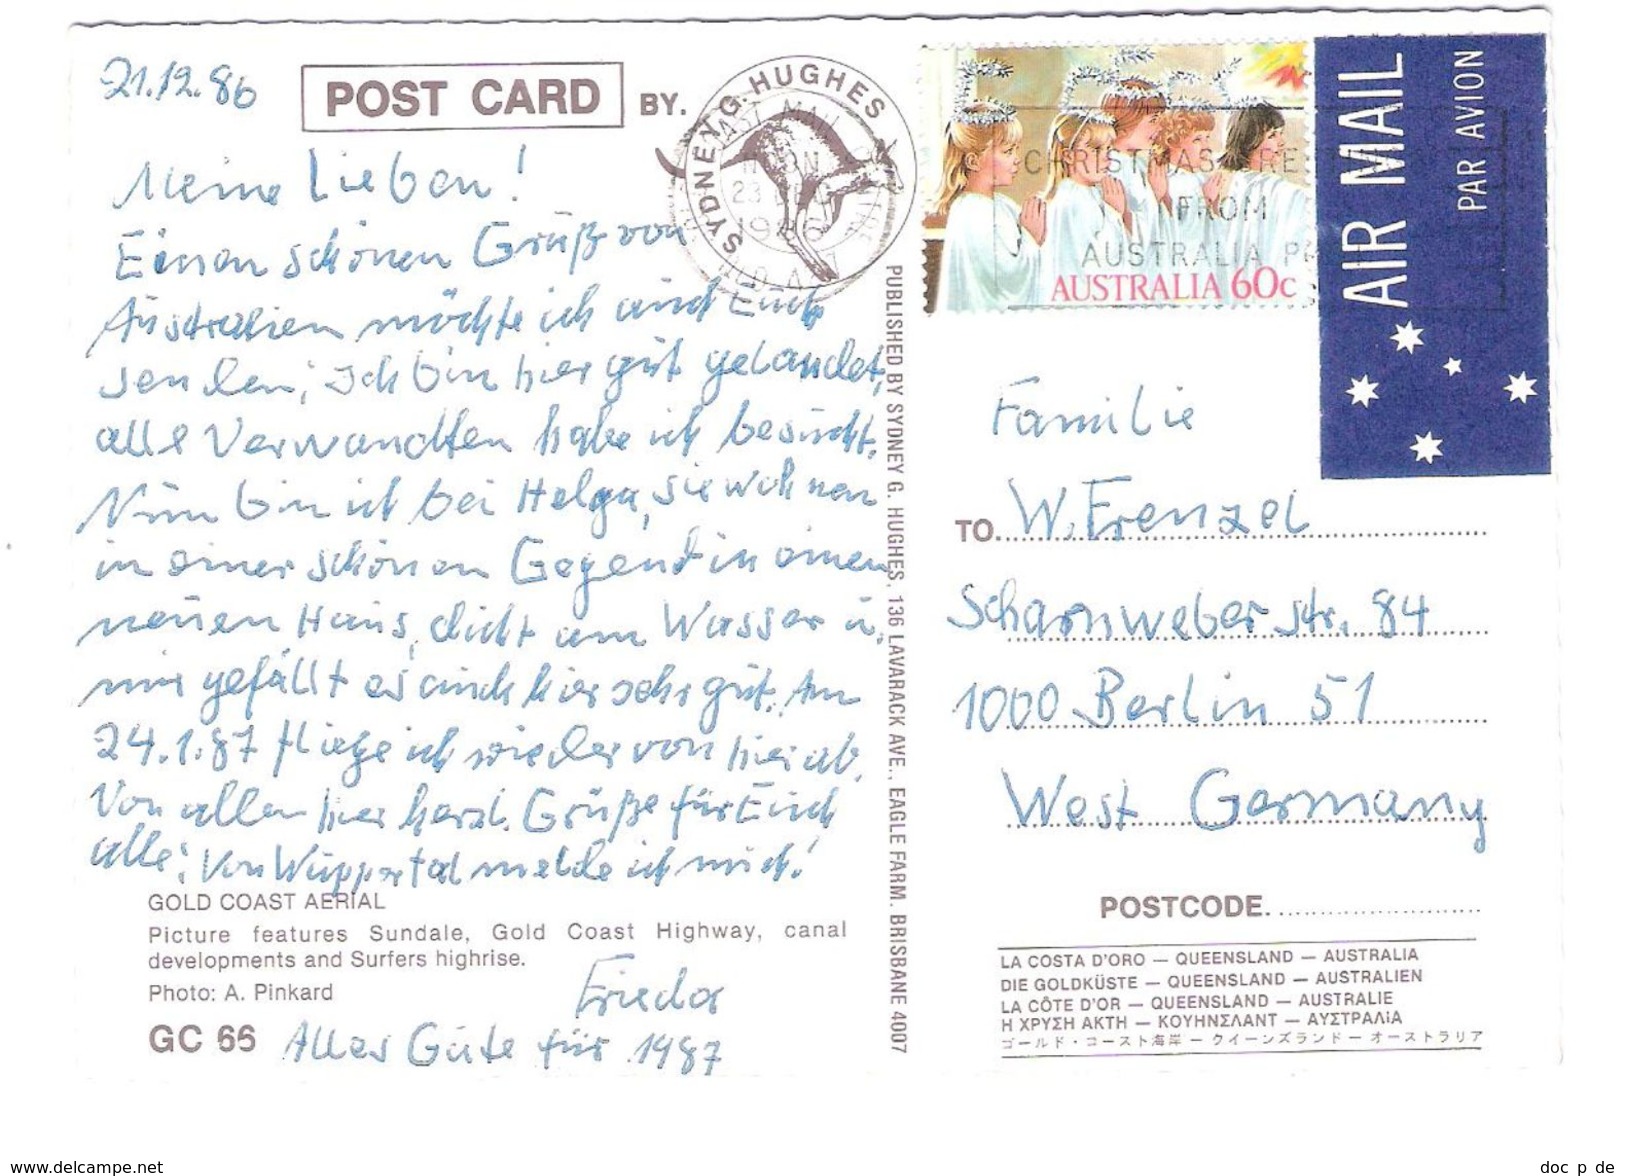 21.12.86
POST CARD BY. SYDNEY G. HUGHES
Meine Lieben!
Einen schönen Gruß von
Australien möchte ich auch Euch
senden; ich bin hier gut gelandet,
alle Verwandten habe ich besucht.
Nun bin ich bei Helga, sie wohnen
in einer schönen Gegend in einen
neuen Haus, dicht am Wasser u.
mir gefällt es auch hier sehr gut. Am
24.1.87 fliege ich wieder von hier ab.
Von allen hier herzl. Grüße für Euch
alle; Von Wuppertal melde ich mich!
GOLD COAST AERIAL
Picture features Sundale, Gold Coast Highway, canal
developments and Surfers highrise.
Photo: A. Pinkard
Frieda
GC 66
Alles Gute für 1987
PUBLISHED BY SYDNEY G. HUGHES, 136 LAVARACK AVE., EAGLE FARM. BRISBANE 4007
23 DEC
1986
CHRISTMAS
FROM
AUSTRALIA
AUSTRALIA 60c
AIR MAIL
PAR AVION
Familie
TO. W. Frenzel
Scharnweberstr. 84
1000 Berlin 51
West Germany
POSTCODE.
LA COSTA D'ORO — QUEENSLAND — AUSTRALIA
DIE GOLDKÜSTE — QUEENSLAND — AUSTRALIEN
LA CÔTE D'OR — QUEENSLAND — AUSTRALIE
Η ΧΡΥΣΗ ΑΚΤΗ — ΚΟΥΗΝΣΛΑΝΤ — ΑΥΣΤΡΑΛίΑ
ゴールド・コースト海岸 — クイーンズランド — オーストラリア
www.delcampe.net
doc_p_de